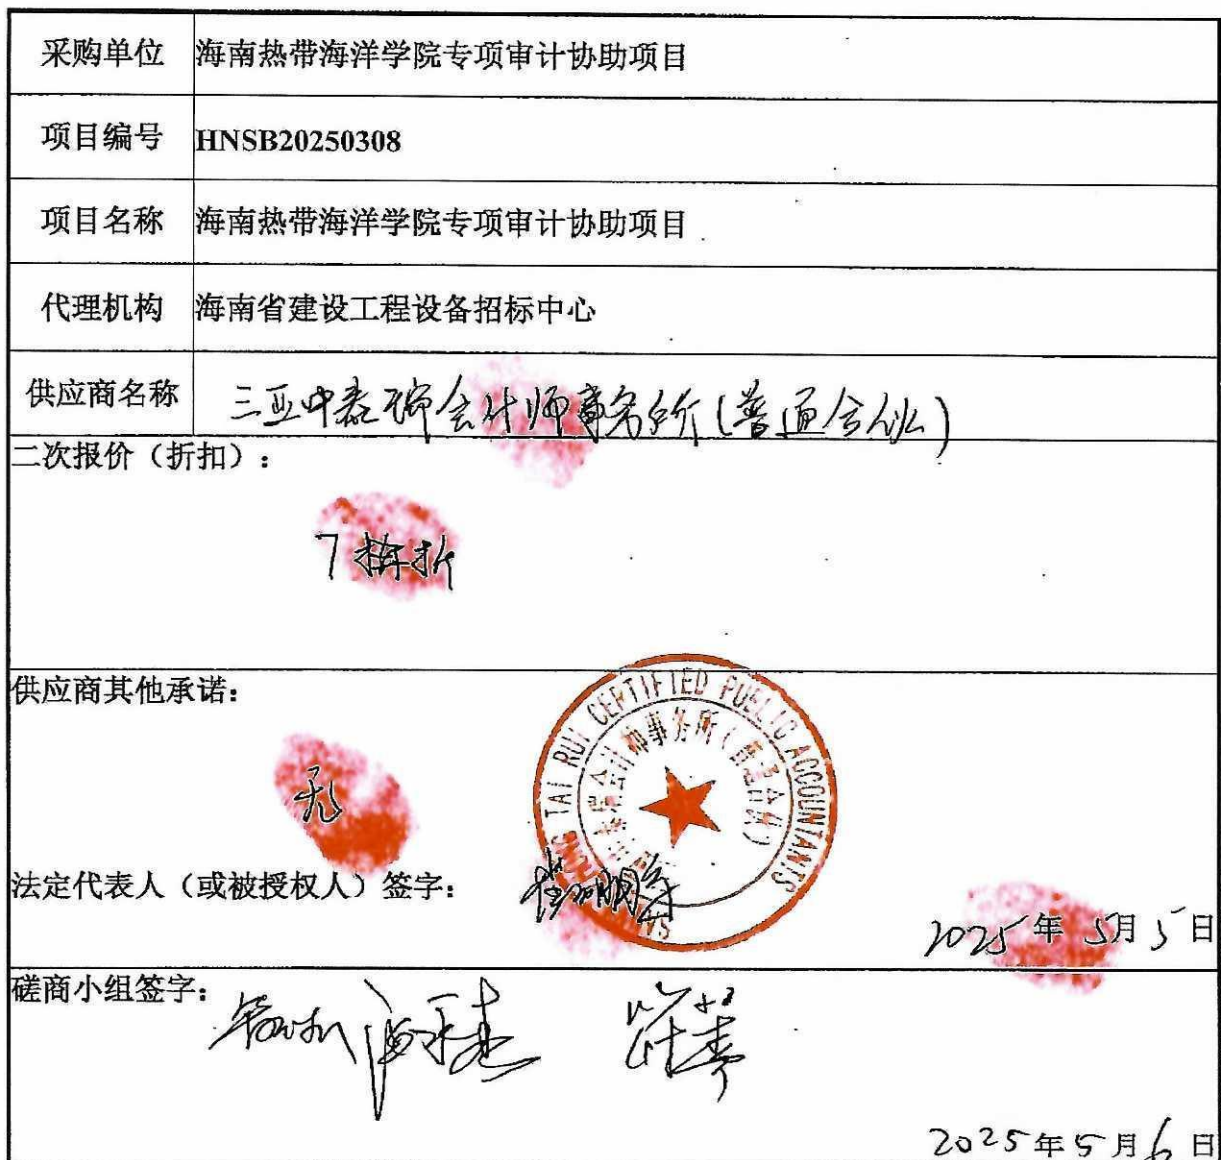 采购单位 海南热带海洋学院专项审计协助项目
项目编号 HNSB20250308
项目名称 海南热带海洋学院专项审计协助项目
代理机构 海南省建设工程设备招标中心
供应商名称 三亚中泰瑞会计师事务所(普通合伙)
二次报价（折扣）：
7折
供应商其他承诺：
无
TAI RUI CERTIFIED PUBLIC ACCOUNTANTS
法定代表人（或被授权人）签字：
2025年5月5日
磋商小组签字：
2025年5月6日